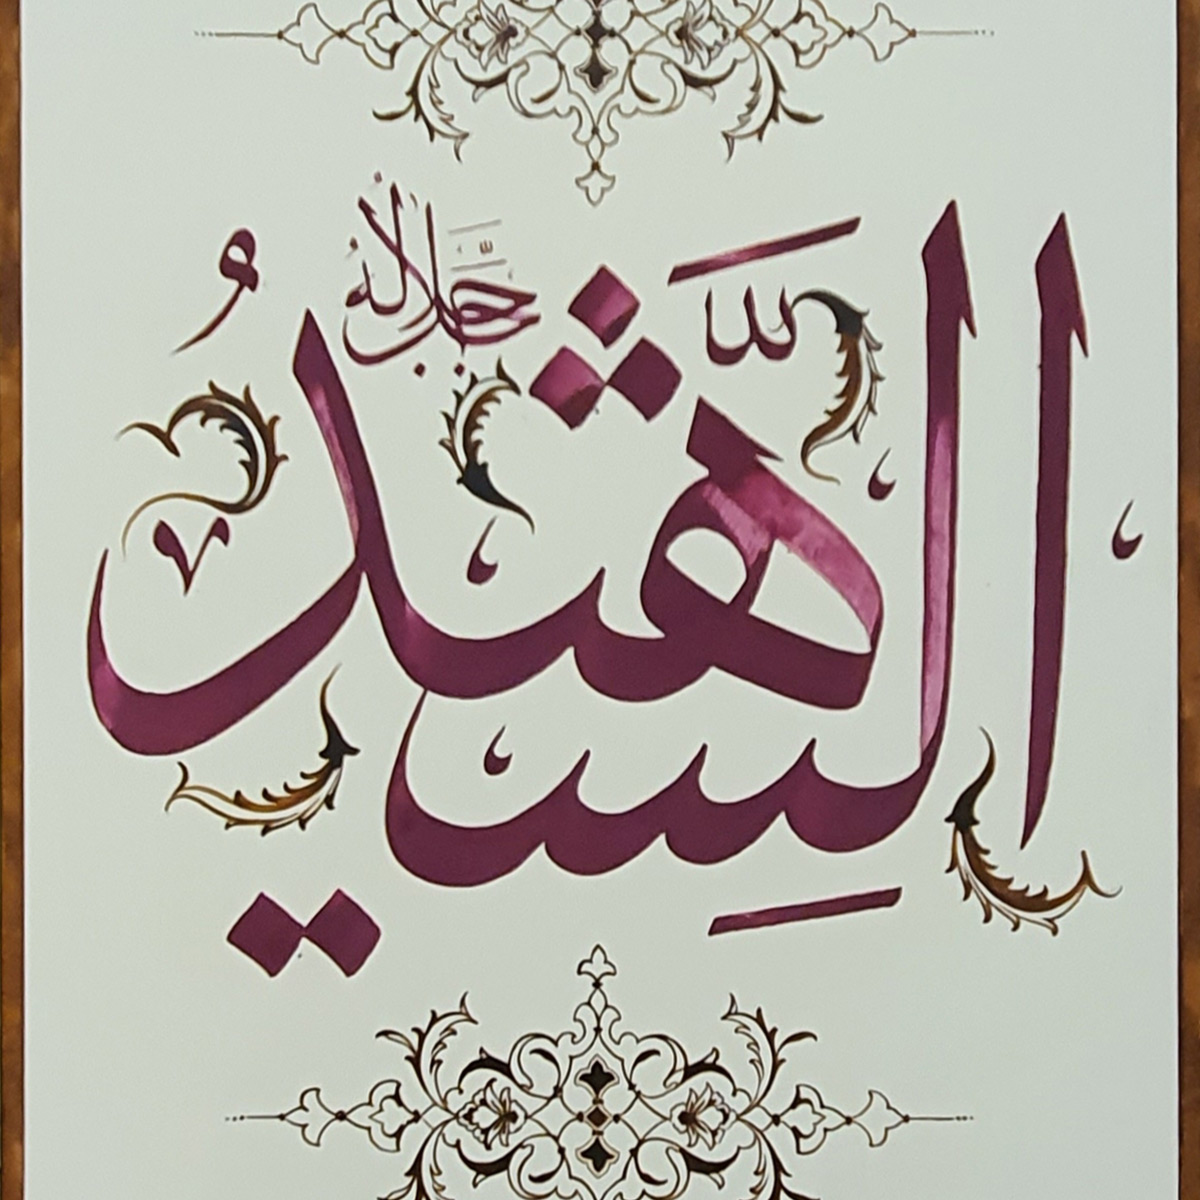 الشَّهِيدُ
جل جلاله